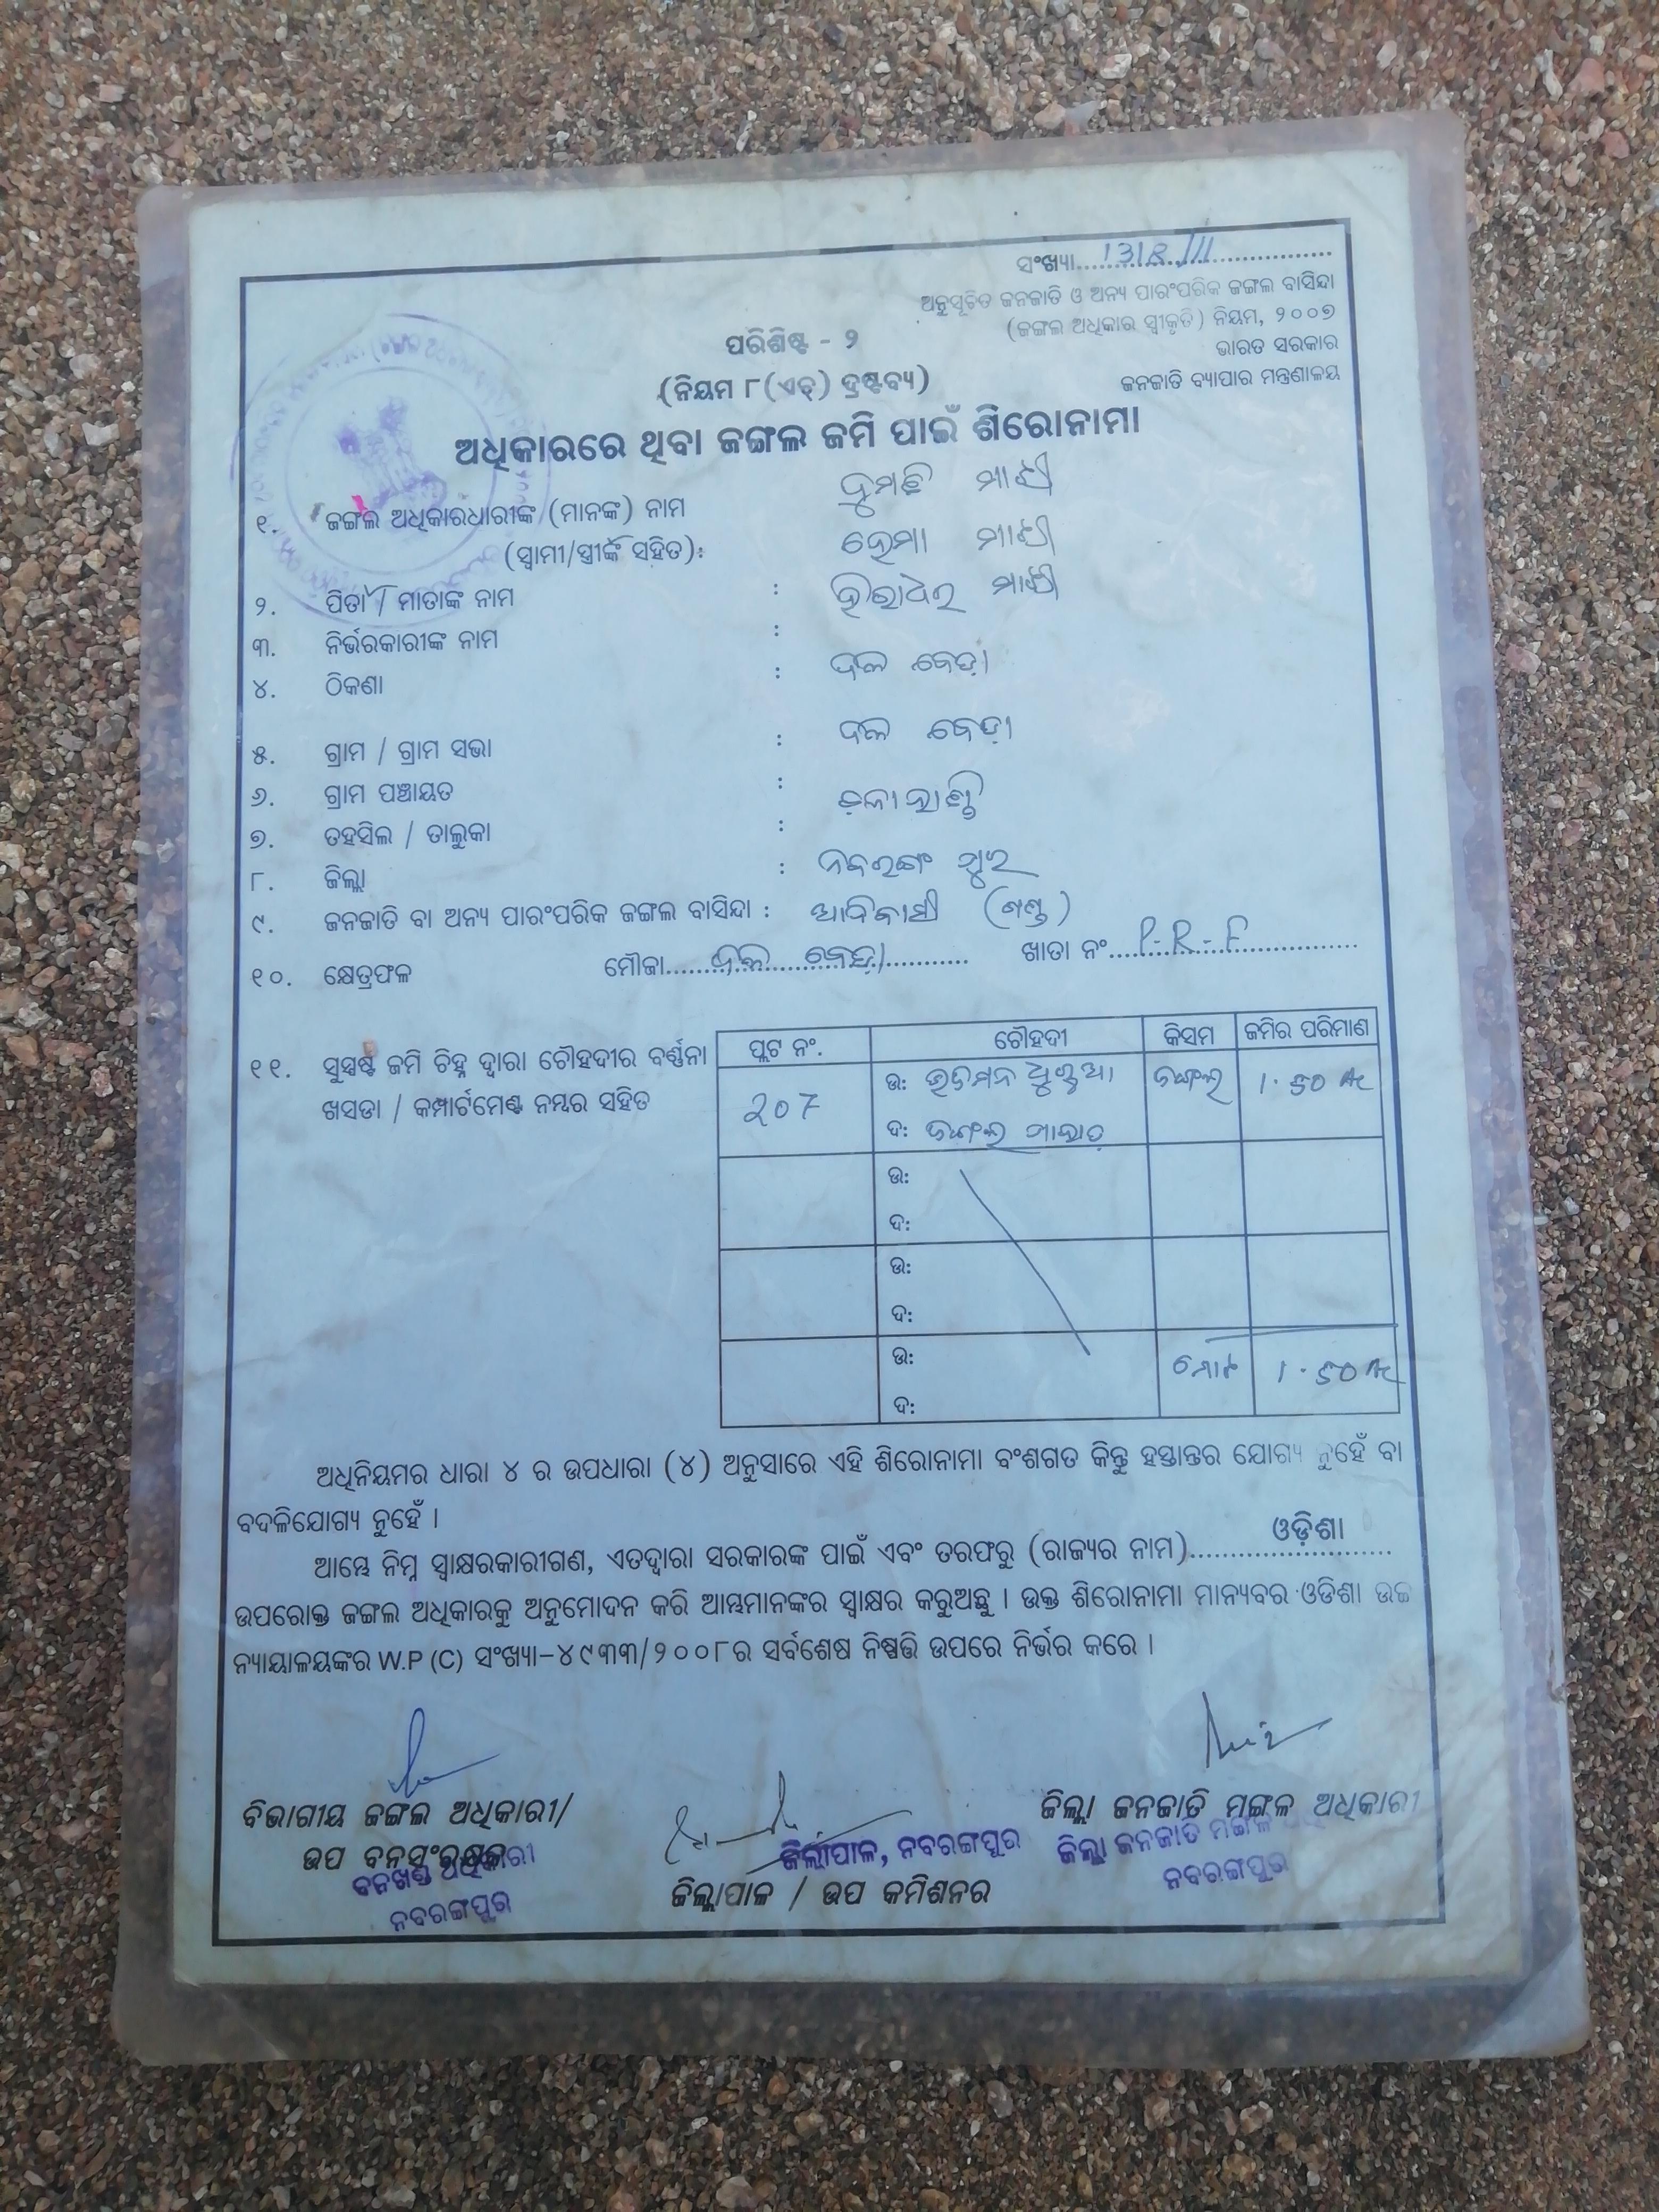 ସଂଖ୍ୟା....1318/11....
ଅନୁସୂଚିତ ଜନଜାତି ଓ ଅନ୍ୟ ପାରଂପରିକ ଜଙ୍ଗଲ ବାସିନ୍ଦା
(ଜଙ୍ଗଲ ଅଧିକାର ସ୍ୱୀକୃତି) ନିୟମ, ୨୦୦୭
ଭାରତ ସରକାର
ଜନଜାତି ବ୍ୟାପାର ମନ୍ତ୍ରଣାଳୟ
ପରିଶିଷ୍ଟ - ୨
(ନିୟମ ୮(ଏଚ୍) ଦ୍ରଷ୍ଟବ୍ୟ)
ଅଧିକାରରେ ଥିବା ଜଙ୍ଗଲ ଜମି ପାଇଁ ଶିରୋନାମା
୧. ଜଙ୍ଗଲ ଅଧିକାରଧାରୀଙ୍କ (ମାନଙ୍କ) ନାମ ମାଝୀ
(ସ୍ୱାମୀ/ସ୍ତ୍ରୀଙ୍କ ସହିତ): ହେମା ମାଝୀ
୨. ପିତା / ମାତାଙ୍କ ନାମ : ମାଝୀ
୩. ନିର୍ଭରକାରୀଙ୍କ ନାମ :
୪. ଠିକଣା : ଦଳ ବେଡ଼ା
୫. ଗ୍ରାମ / ଗ୍ରାମ ସଭା : ଦଳ ବେଡ଼ା
୬. ଗ୍ରାମ ପଞ୍ଚାୟତ :
୭. ତହସିଲ / ତାଲୁକା :
୮. ଜିଲ୍ଲା : ନବରଙ୍ଗ ପୁର
୯. ଜନଜାତି ବା ଅନ୍ୟ ପାରଂପରିକ ଜଙ୍ଗଲ ବାସିନ୍ଦା : ଆଦିବାସୀ
୧୦. କ୍ଷେତ୍ରଫଳ ମୌଜା....ଦଳ ବେଡ଼ା.... ଖାତା ନଂ....P-R-F....
୧୧. ସୁସ୍ପଷ୍ଟ ଜମି ଚିହ୍ନ ଦ୍ୱାରା ଚୌହଦୀର ବର୍ଣ୍ଣନା
ଖସଡା / କମ୍ପାର୍ଟମେଣ୍ଟ ନମ୍ବର ସହିତ
ପ୍ଲଟ ନଂ. ଚୌହଦୀ କିସମ ଜମିର ପରିମାଣ
207 ଉ: ଜଙ୍ଗଲ 1.50 Ac
ଦ: ଜଙ୍ଗଲ ପାହାଡ଼
ଉ:
ଦ:
ଉ:
ଦ:
ଉ: ମୋଟ 1.50 Ac
ଦ:
ଅଧିନିୟମର ଧାରା ୪ ର ଉପଧାରା (୪) ଅନୁସାରେ ଏହି ଶିରୋନାମା ବଂଶଗତ କିନ୍ତୁ ହସ୍ତାନ୍ତର ଯୋଗ୍ୟ ନୁହେଁ ବା
ବଦଳିଯୋଗ୍ୟ ନୁହେଁ ।
ଆମ୍ଭେ ନିମ୍ନ ସ୍ୱାକ୍ଷରକାରୀଗଣ, ଏତଦ୍ୱାରା ସରକାରଙ୍କ ପାଇଁ ଏବଂ ତରଫରୁ (ରାଜ୍ୟର ନାମ)....ଓଡ଼ିଶା....
ଉପରୋକ୍ତ ଜଙ୍ଗଲ ଅଧିକାରକୁ ଅନୁମୋଦନ କରି ଆମ୍ଭମାନଙ୍କର ସ୍ୱାକ୍ଷର କରୁଅଛୁ । ଉକ୍ତ ଶିରୋନାମା ମାନ୍ୟବର ଓଡିଶା ଉଚ୍ଚ
ନ୍ୟାୟାଳୟଙ୍କର W.P (C) ସଂଖ୍ୟା-୪୯୩୩/୨୦୦୮ର ସର୍ବଶେଷ ନିଷ୍ପତ୍ତି ଉପରେ ନିର୍ଭର କରେ ।
ବିଭାଗୀୟ ଜଙ୍ଗଲ ଅଧିକାରୀ/
ଉପ ବନସଂରକ୍ଷକ
ବନଖଣ୍ଡ ଅଧିକାରୀ
ନବରଙ୍ଗପୁର
ଜିଲ୍ଲାପାଳ, ନବରଙ୍ଗପୁର
ଜିଲ୍ଲାପାଳ / ଉପ କମିଶନର
ଜିଲ୍ଲା ଜନଜାତି ମଙ୍ଗଳ ଅଧିକାରୀ
ଜିଲ୍ଲା ଜନଜାତି ମଙ୍ଗଳ
ନବରଙ୍ଗପୁର